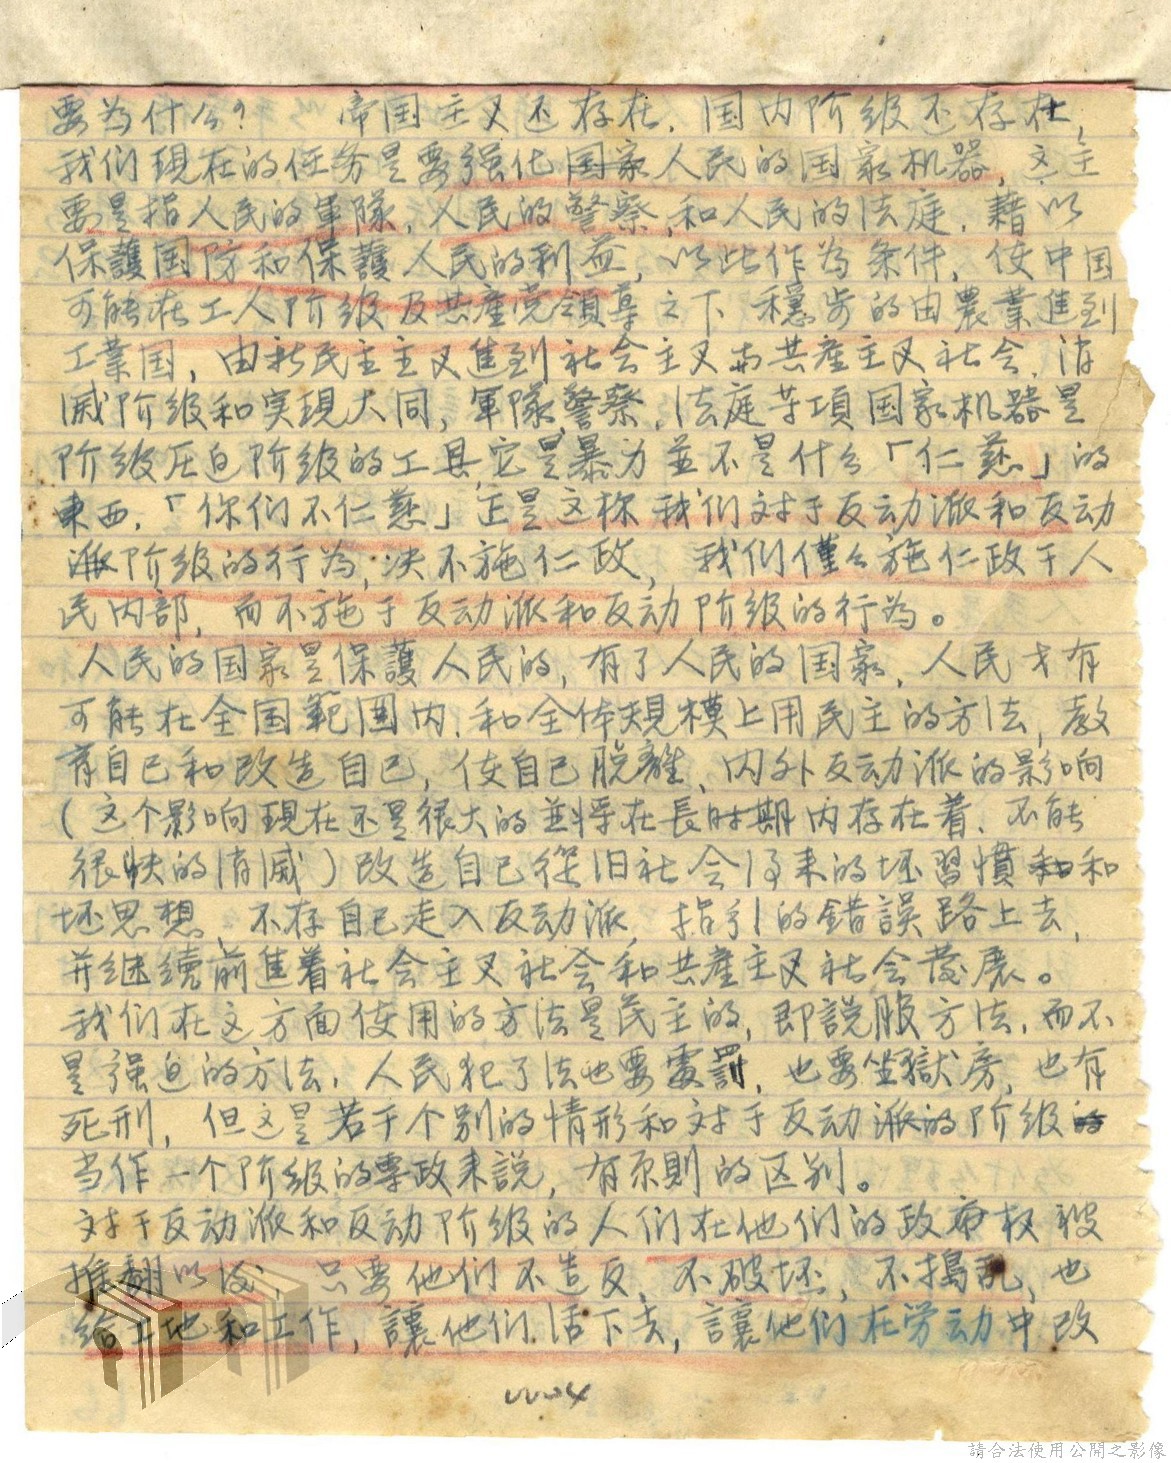 要为什么？　帝国主义还存在，国内阶级还存在，
我们現在的任务是要强化国家人民的国家机器，这主
要是指人民的軍隊，人民的警察，和人民的法庭，藉以
保護国防和保護人民的利益，以此作为条件，使中国
可能在工人阶级及共產党領導之下穩步的由農業進到
工業国，由新民主主义進到社会主义与共產主义社会，消
滅阶级和实現大同，軍隊，警察，法庭等項国家机器是
阶级压迫阶级的工具，它是暴力並不是什么「仁慈」的
東西，「你们不仁慈」正是这样我们对于反动派和反动
派阶级的行为，决不施仁政，我们僅仅施仁政于人
民内部，而不施于反动派和反动阶级的行为。
人民的国家是保護人民的，有了人民的国家，人民才有
可能在全国範圍内，和全体規模上用民主的方法，教
育自己和改造自己，使自己脱離，内外反动派的影响
（这个影响現在还是很大的並将在長时期内存在着，不能
很快的消滅）改造自己從旧社会得来的坏習慣和和
坏思想，不存自己走入反动派，指引的錯誤路上去，
并继續前進着社会主义社会和共產主义社会發展。
我们在这方面使用的方法是民主的，即説服方法，而不
是强迫的方法，人民犯了法也要處罰，也要坐獄房，也有
死刑，但这是若干个别的情形和对于反动派的阶级的
当作一个阶级的專政来説，有原則的区别。
对于反动派和反动阶级的人们在他们的政府权被
推翻以后，只要他们不造反，不破坏，不搗乱，也
给土地和工作，讓他们活下去，讓他们在劳动中改
请合法使用公開之影像